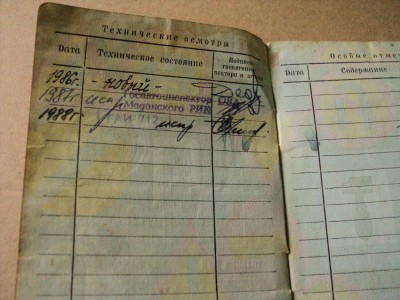 Технические осмотры
Дата Техническое состояние Подпись госавтоинспектора и штамп
1986г. - новый -
1987г исп
Госавтоинспектор ОВД
Мадонского РИК
1988г. испр
Особые отме
Содержание